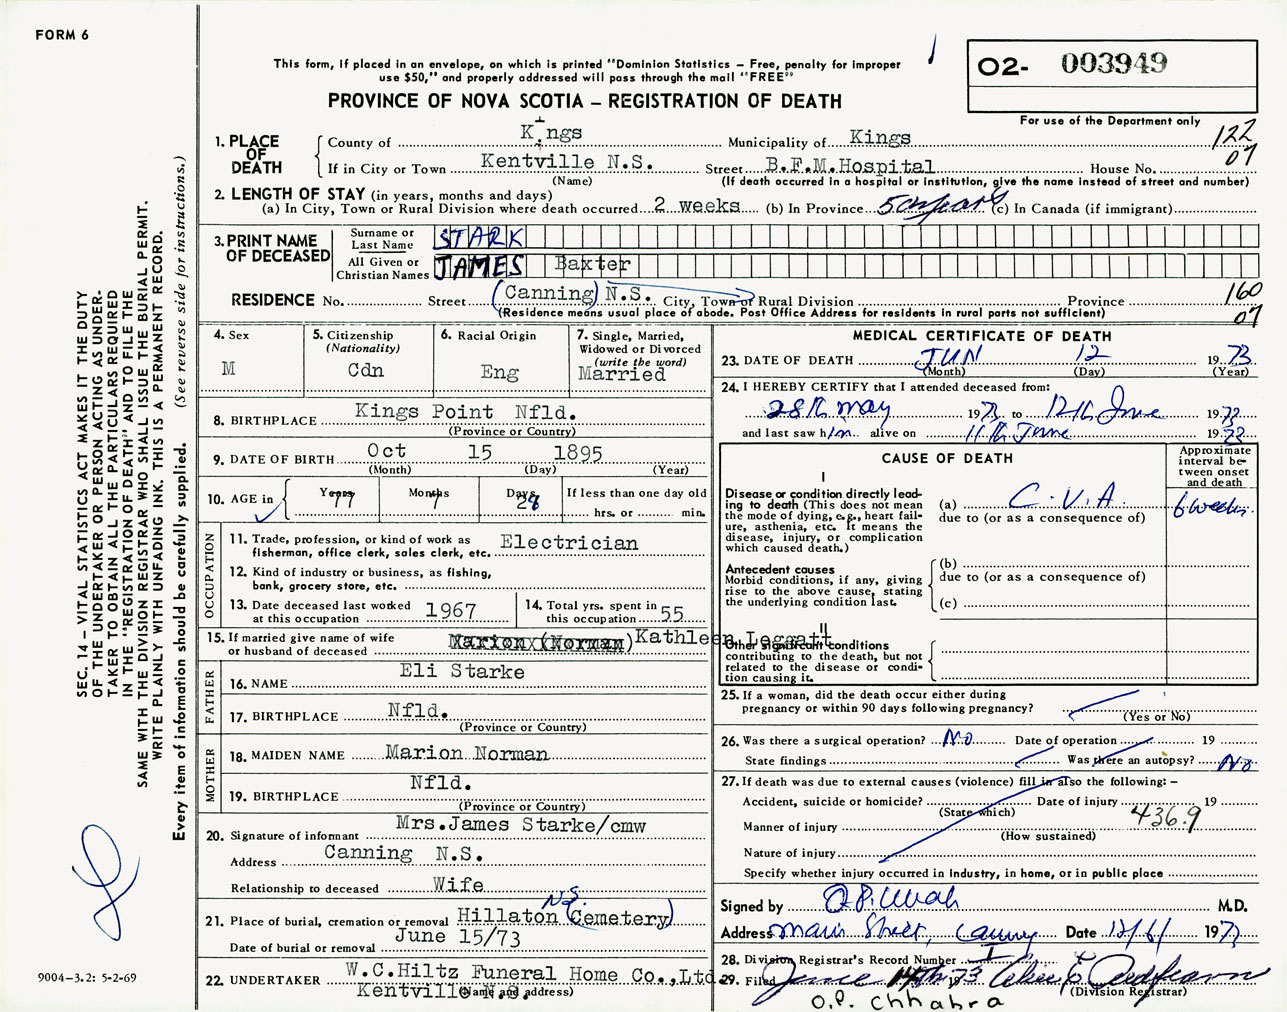 FORM 6
This form, if placed in an envelope, on which is printed "Dominion Statistics – Free, penalty for improper
use $50," and properly addressed will pass through the mail "FREE"
O2- 003949
PROVINCE OF NOVA SCOTIA – REGISTRATION OF DEATH
For use of the Department only
122
07
1. PLACE OF DEATH
County of Kings Municipality of Kings
If in City or Town Kentville N.S. Street B.F.M.Hospital House No.
(Name) (If death occurred in a hospital or institution, give the name instead of street and number)
2. LENGTH OF STAY (in years, months and days)
(a) In City, Town or Rural Division where death occurred 2 weeks (b) In Province 50 years (c) In Canada (if immigrant)
3. PRINT NAME OF DECEASED
Surname or Last Name STARK
All Given or Christian Names JAMES Baxter
RESIDENCE No. Street (Canning) N.S. City, Town or Rural Division Province
160
07
(Residence means usual place of abode. Post Office Address for residents in rural parts not sufficient)
4. Sex
M
5. Citizenship
(Nationality)
Cdn
6. Racial Origin
Eng
7. Single, Married,
Widowed or Divorced
(write the word)
Married
8. BIRTHPLACE Kings Point Nfld.
(Province or Country)
9. DATE OF BIRTH Oct 15 1895
(Month) (Day) (Year)
10. AGE in Years 77 Months 7 Days 28 If less than one day old
hrs. or min.
OCCUPATION
11. Trade, profession, or kind of work as
fisherman, office clerk, sales clerk, etc. Electrician
12. Kind of industry or business, as fishing,
bank, grocery store, etc.
13. Date deceased last worked
at this occupation 1967
14. Total yrs. spent in
this occupation 55
15. If married give name of wife
or husband of deceased Marion (Norman) Kathleen Leggatt
FATHER
16. NAME Eli Starke
17. BIRTHPLACE Nfld.
(Province or Country)
MOTHER
18. MAIDEN NAME Marion Norman
19. BIRTHPLACE Nfld.
(Province or Country)
20. Signature of informant Mrs.James Starke/cmw
Address Canning N.S.
Relationship to deceased Wife
N.S.
21. Place of burial, cremation or removal Hillaton (Cemetery)
Date of burial or removal June 15/73
22. UNDERTAKER W.C.Hiltz Funeral Home Co.,Ltd.
Kentville N.S.
(Name and address)
MEDICAL CERTIFICATE OF DEATH
23. DATE OF DEATH JUN 12 1973
(Month) (Day) (Year)
24. I HEREBY CERTIFY that I attended deceased from:
28th may 1973 to 12th June 1973
and last saw him alive on 11th June 1973
CAUSE OF DEATH
Approximate interval between onset and death
I
Disease or condition directly leading to death (This does not
mean the mode of dying, e.g., heart failure, asthenia, etc. It means the
disease, injury, or complication
which caused death.)
(a) C.V.A. 6 weeks.
due to (or as a consequence of)
Antecedent causes
Morbid conditions, if any, giving
rise to the above cause, stating
the underlying condition last.
(b)
due to (or as a consequence of)
(c)
II
Other significant conditions
contributing to the death, but not
related to the disease or condition causing it.
25. If a woman, did the death occur either during
pregnancy or within 90 days following pregnancy?
(Yes or No)
26. Was there a surgical operation? No Date of operation 19
State findings Was there an autopsy? No
27. If death was due to external causes (violence) fill in also the following: –
Accident, suicide or homicide? Date of injury 19
(State which)
436.9
Manner of injury
(How sustained)
Nature of injury
Specify whether injury occurred in industry, in home, or in public place
Signed by M.D.
Address Main Street, Canning Date 12/6/ 1973
28. Division Registrar's Record Number
29. Filed June 14th 1973
(Division Registrar)
O.P. Chhabra
SEC. 14 – VITAL STATISTICS ACT MAKES IT THE DUTY
OF THE UNDERTAKER OR PERSON ACTING AS UNDER-
TAKER TO OBTAIN ALL THE PARTICULARS REQUIRED
IN THE "REGISTRATION OF DEATH" AND TO FILE THE
SAME WITH THE DIVISION REGISTRAR WHO SHALL ISSUE THE BURIAL PERMIT.
WRITE PLAINLY WITH UNFADING INK. THIS IS A PERMANENT RECORD.
Every item of information should be carefully supplied. (See reverse side for instructions.)
9004–3.2: 5-2-69